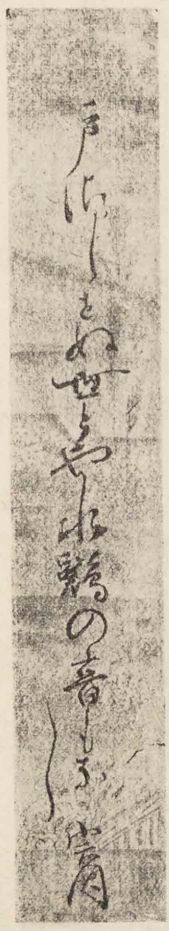 戸ざしせぬ世とや水鶏の音もなし